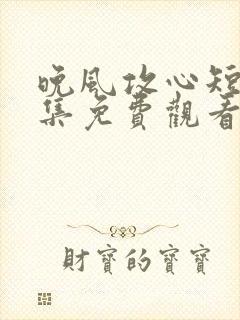 晚風攻心短
集免費觀看
財寶的寶寶